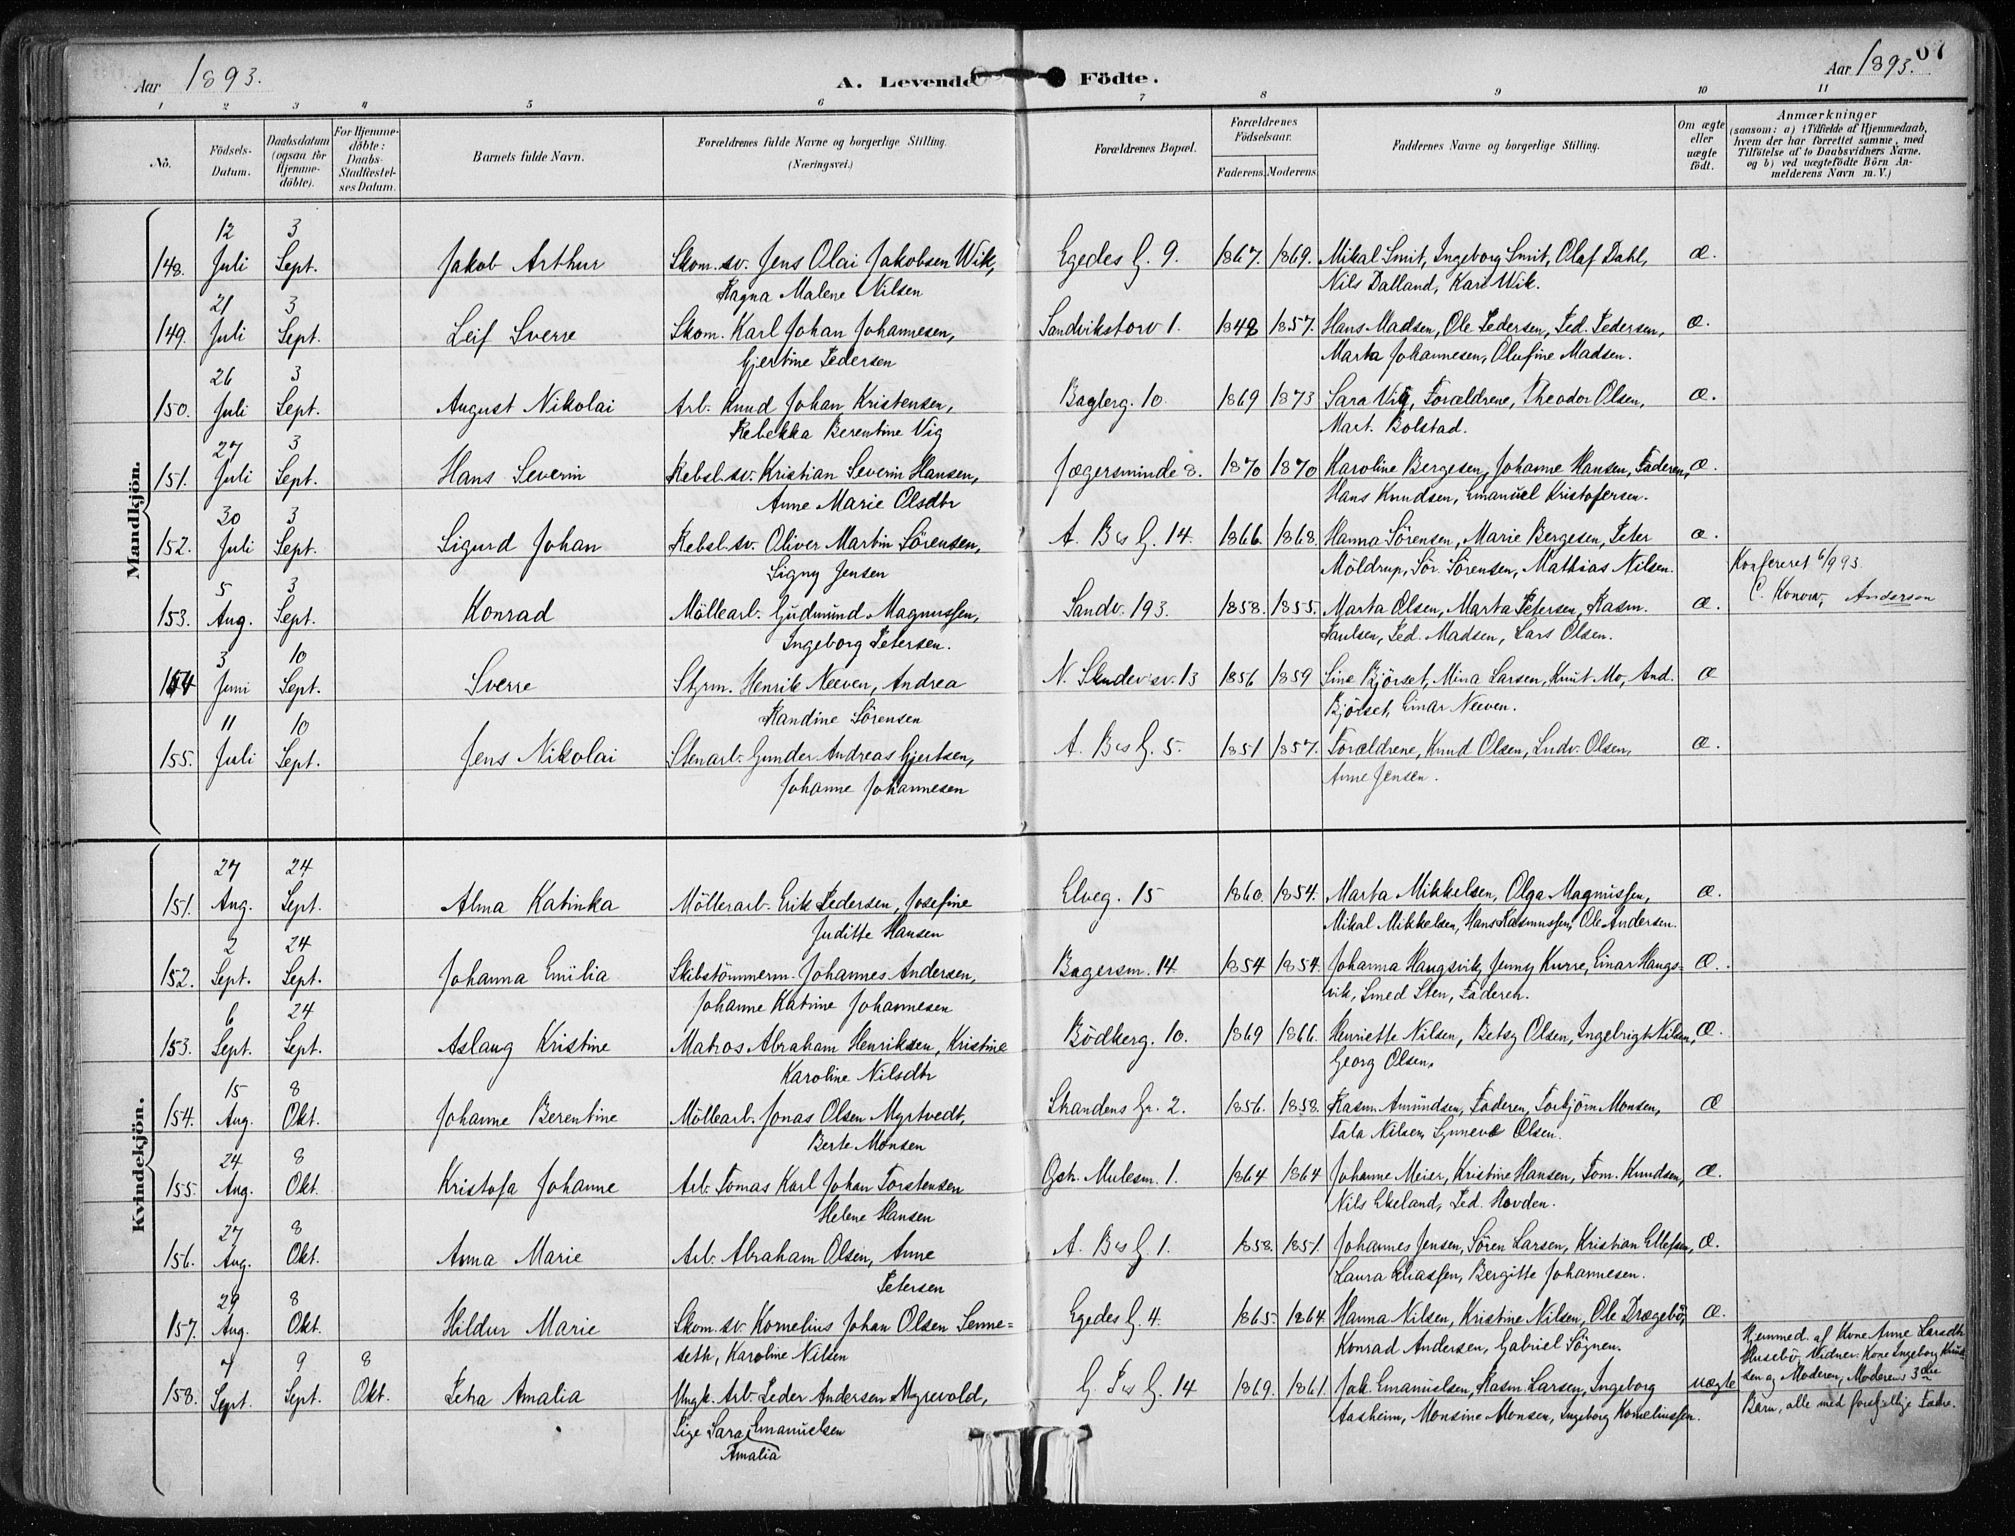 Aar 1893. A. Levende Födte. Aar 1893. 67
1 2 3 4 5 6 7 8 9 10 11
No. Födsels-Datum. Daabsdatum (ogsaa for Hjemme-döbte). For Hjemme-döbte: Daabs-Stadfæstel-ses Datum. Barnets fulde Navn. Forældrenes fulde Navne og borgerlige Stilling. (Næringsvei.) Forældrenes Bopæl. Forældrenes Födselsaar. Faderens. Moderens. Faddernes Navne og borgerlige Stilling. Om ægte eller uægte födt. Anmærkninger (saasom: a) i Tilfælde af Hjemmedaab, hvem der har forrettet samme, med Tilföielse af to Daabsvidners Navne, og b) ved uægtefödte Börn An-melderens Navn m. V.)
Mandkjön.
12 3
148. Juli Sept. Jakob Arthur Skom. sv. Jens Olai Jakobsen Wik, Egedes G. 9. 1867. 1869. Mikal Smit, Ingeborg Smit, Olaf Dahl, Æ.
Ragna Malene Nilsen Nils Dalland, Kari Wik.
21 3
149. Juli Sept. Leif Sverre Skom. Karl Johan Johannesen, Sandvikstorv 1. 1848 1857. Hans Madsen, Ole Pedersen, Ped. Pedersen, Æ.
Gjertine Pedersen Marta Johannesen, Olufine Madsen.
26 3
150. Juli Sept. August Nikolai Arb. Knud Johan Kristensen, Baglerg. 10 1869 1873 Sara Vig, Forældrene, Theodor Olsen, Æ.
Rebekka Berentine Vig Mart. Bolstad.
27 3
151. Juli Sept. Hans Severin Rebsl. sv. Kristian Severin Hansen, Jægersminde 8. 1870 1870 Karoline Bergesen, Johanne Hansen, Faderen, Æ.
Anne Marie Olsdtr Hans Knudsen, Emanuel Kristofersen.
30 3
152. Juli Sept. Sigurd Johan Rebsl. sv. Oliver Martin Sörensen, A. Bes G. 14. 1866. 1868. Hanna Sörensen, Marie Bergesen, Peter Æ.
Signy Jensen Möldrup, Sör. Sörensen, Mathias Nilsen. Konfereret 6/9 93.
5 3
153. Aug. Sept. Konrad Möllearb. Gudmund Magnussen, Sandv. 193. 1858. 1855. Marta Olsen, Marta Petersen, Rasm. Æ. C. Konow, Andersen
Ingeborg Petersen. Paulsen, Ped. Madsen, Lars Olsen.
3 10
154 Juni Sept. Sverre Styrm. Henrik Neeven, Andrea 1856 1859 Sine Björset, Mina Larsen, Knut Mo, And. Æ
Randine Sörensen Björset, Einar Neeven.
11 10
155. Juli Sept. Jens Nikolai Stenarb. Gunder Andreas Gjertsen, A. Bes G. 5. 1851 1857. Forældrene, Knud Olsen, Ludv. Olsen, Æ.
Johanne Johannesen Anne Jensen.
Kvindekjön.
27 24
151. Aug. Sept. Alma Katinka Möllerarb. Erik Pedersen, Josefine Elveg. 15 1860. 1854. Marta Mikkelsen, Olga Magnussen, Æ.
Juditte Hansen Mikal Mikkelsen, Hans Rasmussen, Ole Andersen.
2 24
152. Sept. Sept. Johanna Emilia Skibstömmerm. Johannes Andersen, Bagersm. 14 1854 1854. Johanna Haugsvik, Jenny Kurre, Einar Haugs= Æ.
Johanne Katrine Johannesen vik, Smed Sten, Faderen.
6 24
153. Sept. Sept. Aslaug Kristine Matros Abraham Henriksen, Kristine Bödkerg. 10. 1869 1866. Henriette Nilsen, Betsy Olsen, Ingebrigt Nilsen, Æ.
Karoline Nilsdtr Georg Olsen.
15 8
154. Aug. Okt. Johanne Berentine Möllearb. Jonas Olsen Myrtvedt, Strandens Gr. 2. 1856. 1858. Rasm. Amundsen, Faderen, Torbjörn Monsen, Æ
Berte Monsen Tala Nilsen, Synneve Olsen.
24 8
155. Aug. Okt. Kristofa Johanne Arb. Tomas Karl Johan Torstensen Mulesm. 1. 1864 1864 Johanne Meier, Kristine Hansen, Tom. Knudsen, Æ.
Helene Hansen Nils Ekeland, Ped. Hovden.
27 8
156. Aug. Okt. Anna Marie Arb. Abraham Olsen, Anne A. Bes G. 1. 1858. 1851. Johannes Jensen, Sören Larsen, Kristian Ellefsen, Æ.
Petersen Laura Eliassen, Bergitte Johannesen.
29 8
157. Aug. Okt. Hildur Marie Skom. sv. Kornelius Johan Olsen Senne= Egedes G. 4. 1865. 1864. Hanna Nilsen, Kristine Nilsen, Ole Drægebö, Æ.
seth, Karoline Nilsen Konrad Andersen, Gabriel Sögnen. Hjemmed. af Kone Anne Larsdtr
7 9 8 Husebö, Vidner: Kone Ingeborg Knud-
158. Sept. Sept. Okt. Petra Amalia Ungk. Arb. Peder Andersen Myrevold, G. Pes G. 14 1869. 1861. Jak. Emanuelsen, Rasm. Larsen, Ingeborg uægte sen og Moderen, Moderens 3die
Pige Sara Emanuelsen Aasheim, Monsine Monsen, Ingeborg Korneliussen. Barn, alle med forskjellige Fædre.
Amalia